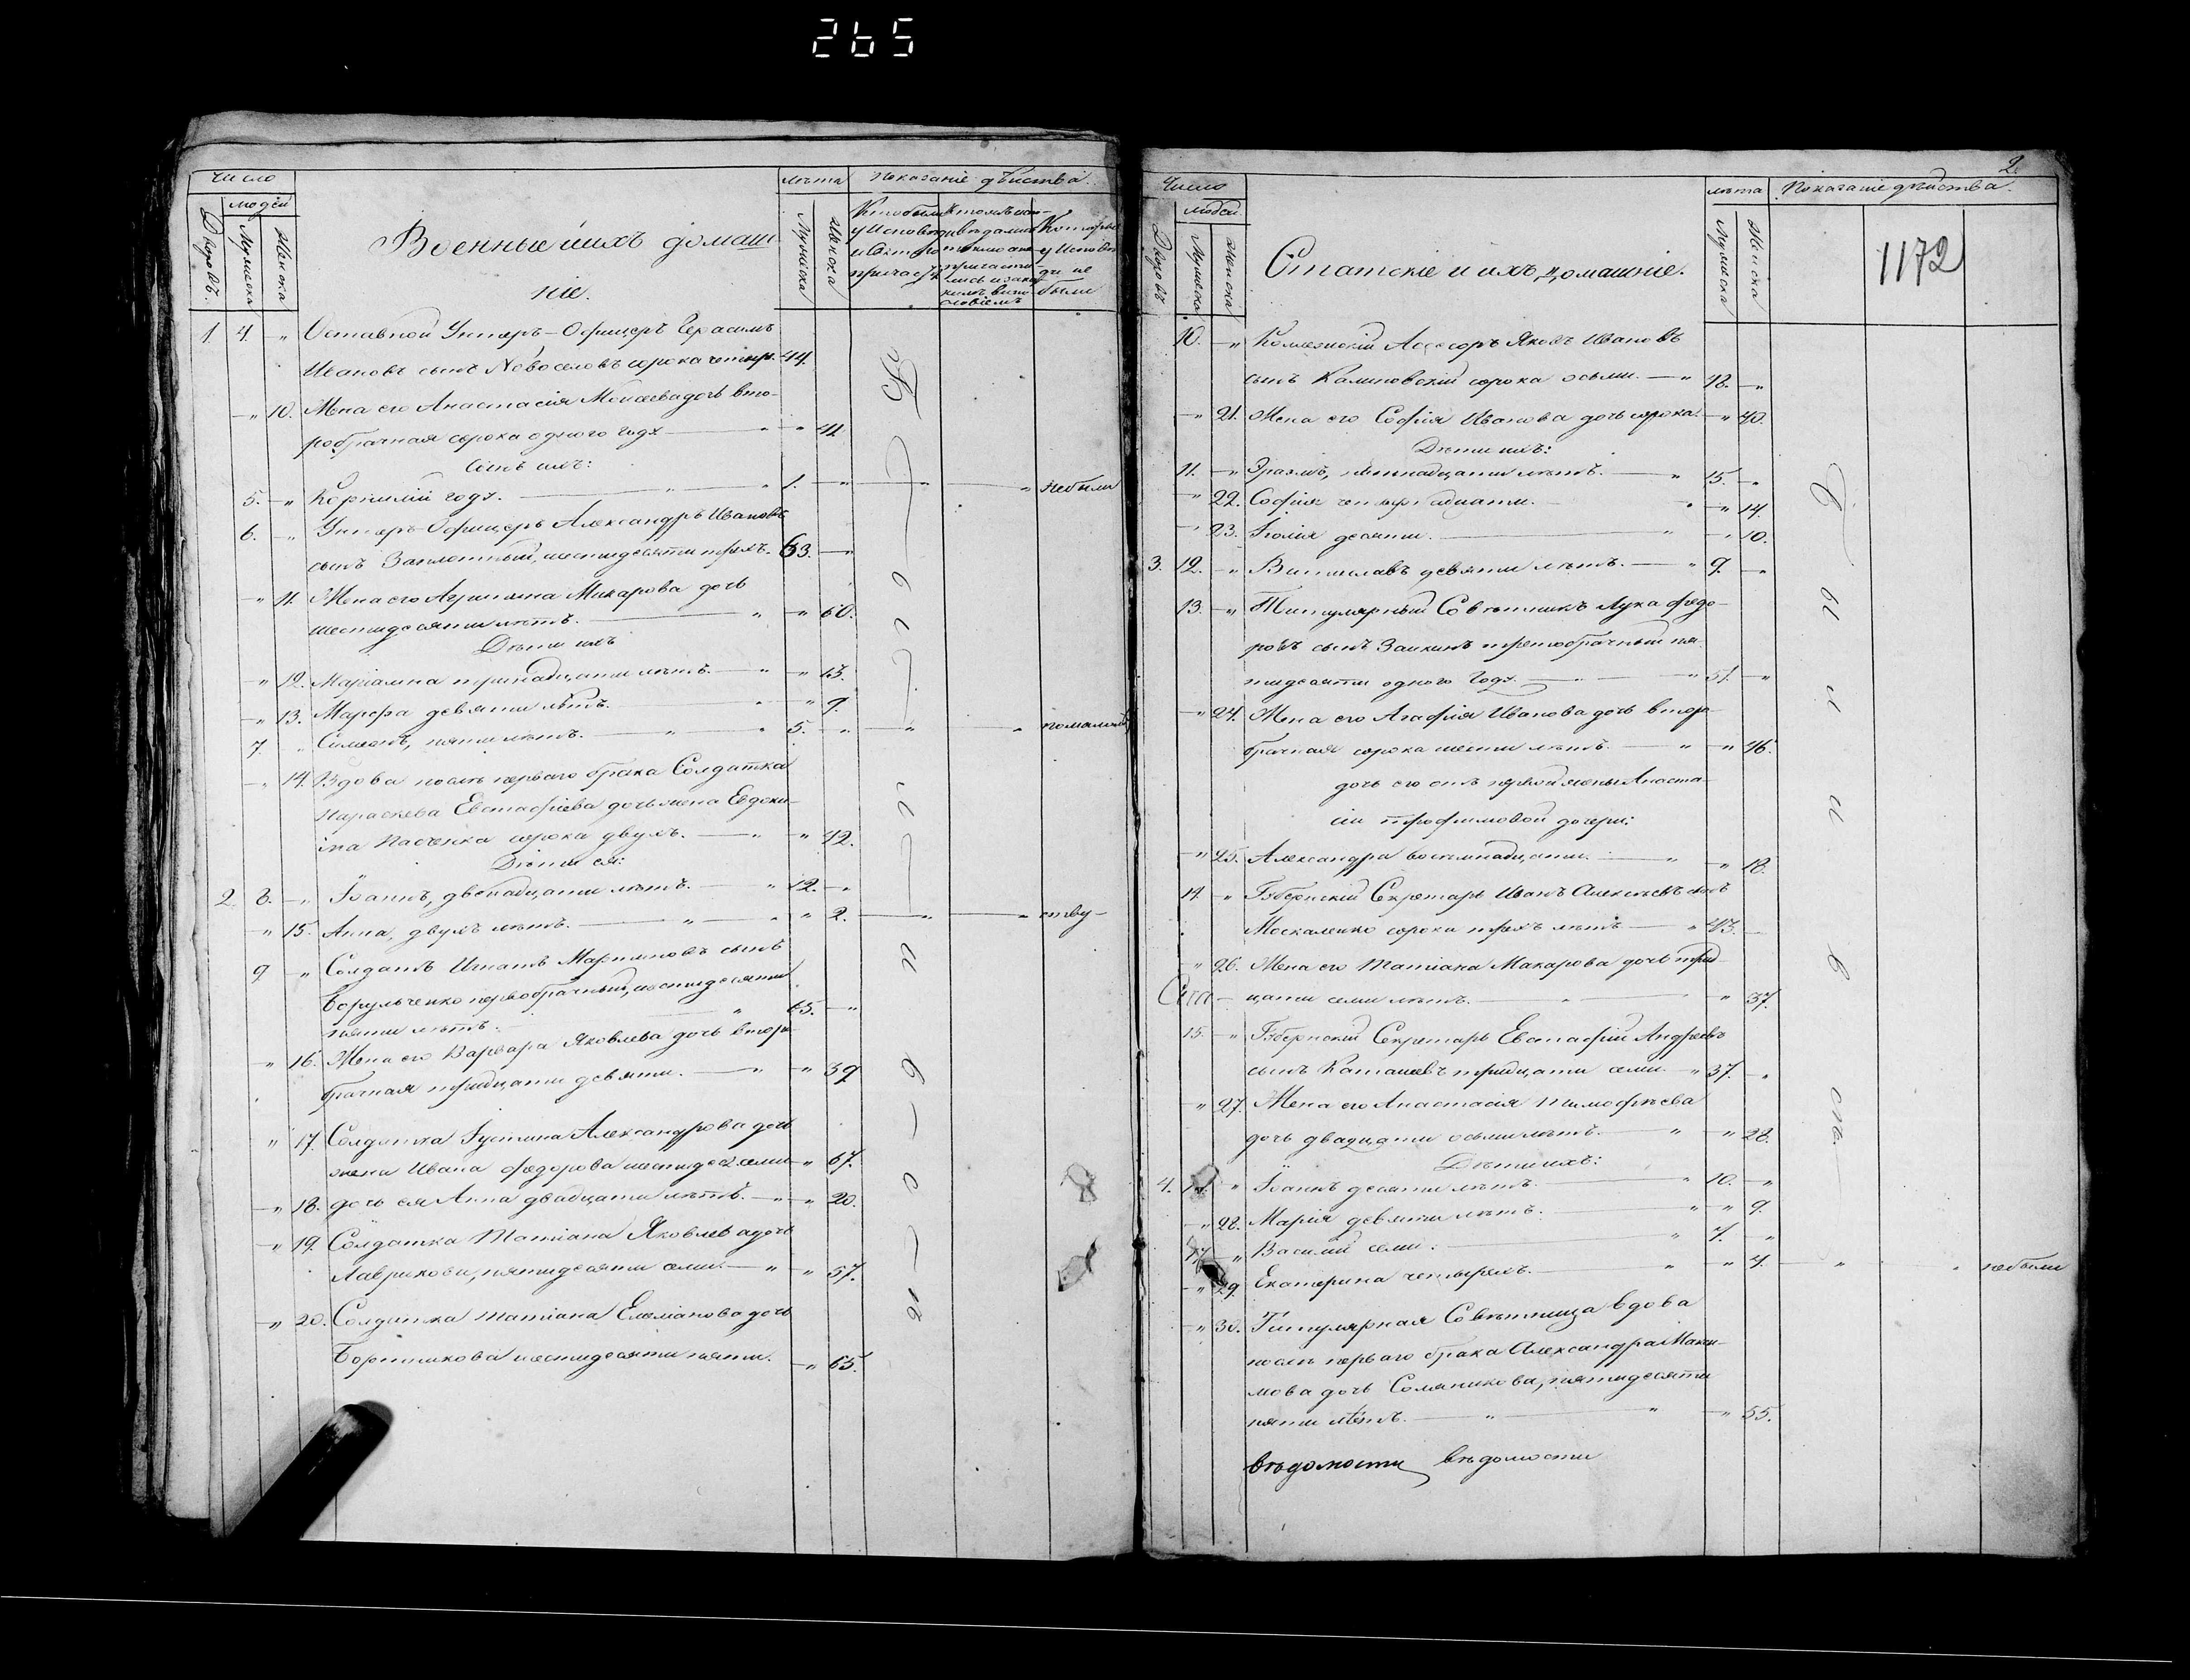 265
Число
людей
Дворовъ.
Мужеска
Женска
Военные и ихъ домаш
ніе.
лѣта
Мужеска
Женска
Показаніе дѣйства.
1. 4. " Оставной Унтеръ-Офицеръ Герасимъ
Ивановъ сынъ Новоселовъ сорока четыр. 44.
" 10. Жена его Анастасія Моисеева дочь вто-
робрачная сорока одного года " " 41.
Сынъ ихъ:
5. " Корнилій года. " " 1. " " " небыли
6. " Унтеръ-Офицеръ Александръ Ивановъ
сынъ Заплотный, шестидесяти трехъ. 63. "
" 11. Жена его Агрипина Макарова дочь
шестидесяти лѣтъ. " " 60.
Дѣти ихъ
" 12. Маріамна тринадцати лѣтъ. " " 13.
" 13. Марфа девяти лѣтъ. " " 9.
7. " Симеонъ, пяти лѣтъ. " " 5. " " " помалолѣ
" 14. Вдова послѣ перваго брака Солдатка
Параскева Евстафіева дочь жена Евдоки-
има Пасенка сорока двухъ. " " 42.
Дѣти ея:
2. 8. " Іоаннъ, двенадцати лѣтъ. " 12. "
" 15. Анна, двухъ лѣтъ. " " " 2. " " ству-
9 " Солдатъ Игнатъ Мартиновъ сынъ
Борульченко первобрачный, шестидесяти
пяти лѣтъ. " 65. "
" 16. Жена его Варвара Яковлева дочь второ
брачная тридцати девяти. " " 39
" 17. Солдатка Іустина Александрова дочь
жена Ивана Федорова шестидес. семи " 67.
" 18. дочь ея Анна двадцати лѣтъ. " " 20.
" 19. Солдатка Татіана Яковлева дочь
Лаврикова, пятидесяти семи. " " 57.
" 20. Солдатка Татіана Емеліанова дочь
Бортникова шестидесяти пяти. " 65.
2.
Число
людей
Дворовъ
Мужеска
Женска
Статскіе и ихъ домашніе.
лѣта
Мужеска
Женска
Показаніе дѣйства.
1172
10. " Коллежскій Ассесоръ Яковъ Ивановъ
сынъ Калиновскій сорока осьми. " 48. "
" 21. Жена его Софія Иванова дочь сорока. " 40.
Дѣти ихъ:
11. " Эразмъ, пятнадцати лѣтъ. " 15. "
" 22. Софія четырнадцати. " " 14.
" 23. Іюлія десяти. " " 10.
3. 12. " Витиславъ девяти лѣтъ. " 9. "
13. " Титулярный Совѣтникъ Лука Федо-
ровъ сынъ Заикинъ третобрачный пя-
тидесяти одного года. " " 51. "
" 24. Жена его Агафія Иванова дочь второ
брачная сорока шести лѣтъ. " " 46.
дочь его отъ первой жены Анаста-
сіи Трофимовой дочери:
" 25. Александра восемнадцати. " " 18.
14. " Губернскій Секретарь Иванъ Алексѣевъ сынъ
Москаленко сорока трехъ лѣтъ " 43.
" 26. Жена его Татіана Макарова дочь трид-
цати семи лѣтъ. " " " 37.
15. " Губернскій Секретарь Евстафій Андреевъ
сынъ Каташевъ тридцати семи. " 37. "
" 27. Жена его Анастасія Тимофѣева
дочь двадцати осьми лѣтъ. " " 28.
Дѣти ихъ:
4. " Іоаннъ десяти лѣтъ. " 10. "
" 28. Марія девяти лѣтъ. " " 9.
17 " Василій семи. " 7. "
" 29. Екатерина четырехъ. " " 4. " " небыли
" 30. Титулярная Совѣтница вдова
послѣ перваго брака Александра Макси-
мова дочь Соляникова, пятидесяти
пяти лѣтъ. " " " 55.
вѣдомости вѣдомости